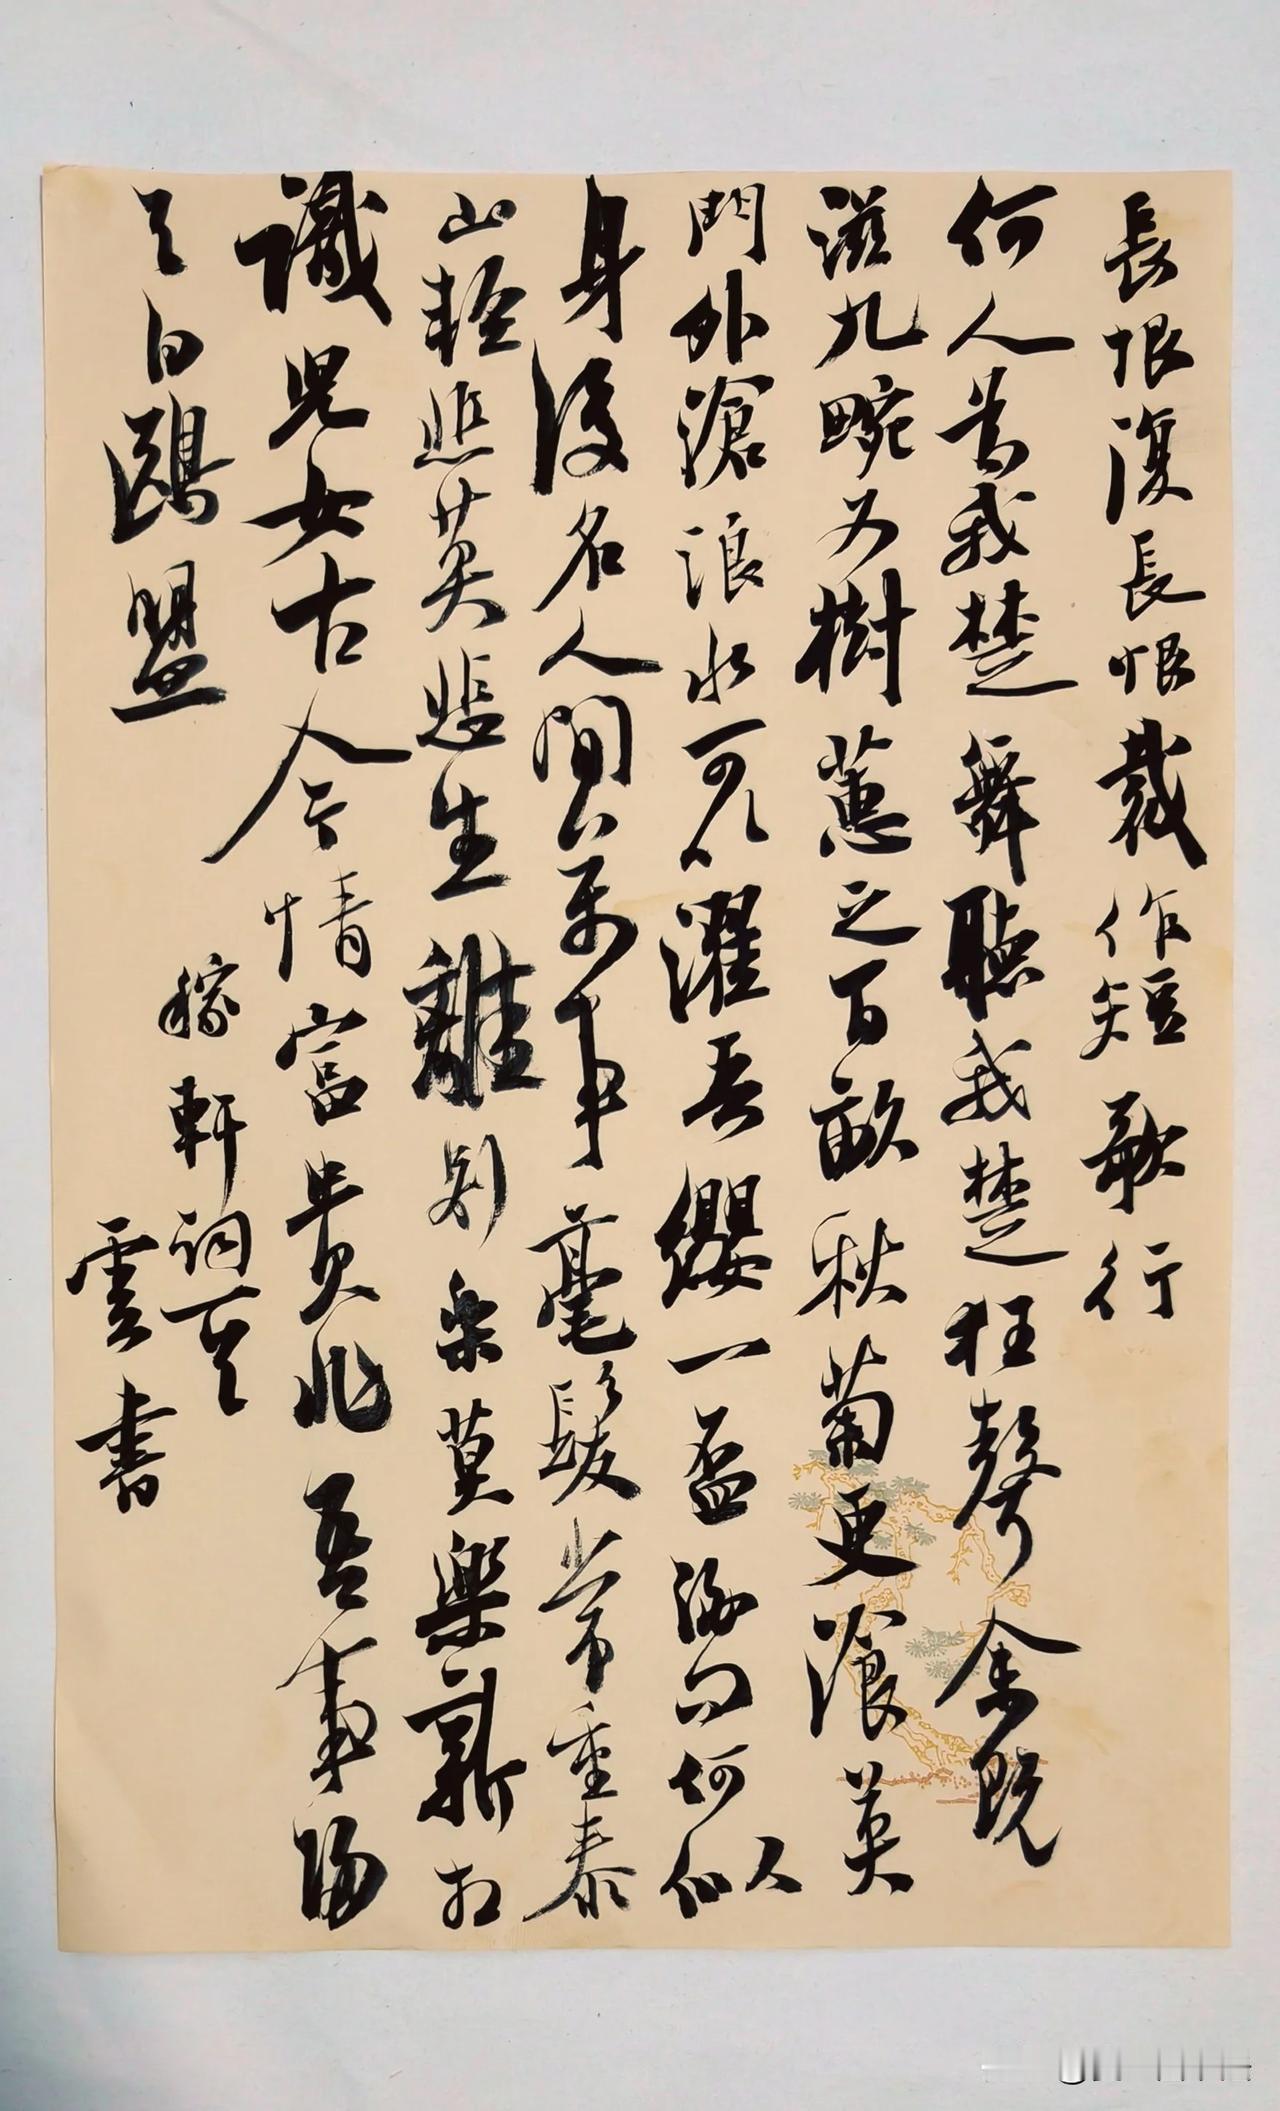 長恨復長恨裁作短歌行
何人為我楚舞聽我楚狂聲余既
滋九畹又樹蕙之百畝秋菊更湌英
門外滄浪水可以濯吾纓一盃酒問何似
身後名人間萬事毫髮常重泰
山輕悲莫悲生離別樂莫樂新相
識兒女古今情富貴非吾事歸
与白鷗盟
稼軒詞
雲書